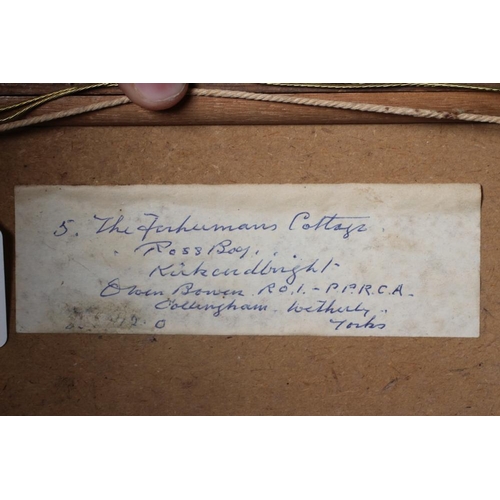 5. The Fishermans Cottage.
Ross Bay.
Kirkcudbright
Owen Bowen R.O.I. - P.P.R.C.A.
Collingham. Wetherby.
Yorks